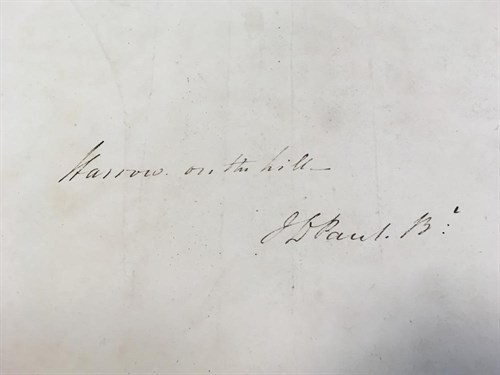 Harrow on the hill —
J D Paul. Bt